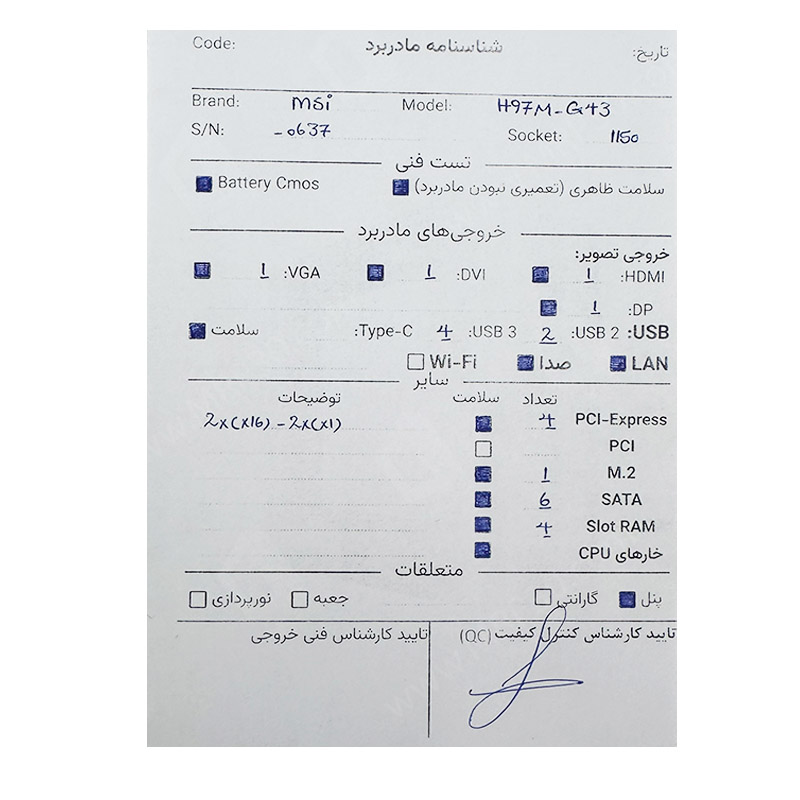 Code: شناسنامه مادربرد تاریخ:
Brand: msi Model: H97M-G43
S/N: -0637 Socket: 1150
تست فنی
سلامت ظاهری (تعمیری نبودن مادربرد) Battery Cmos
خروجی‌های مادربرد
خروجی تصویر:
HDMI: 1 DVI: 1 VGA: 1
DP: 1
USB: USB 2: 2 USB 3: 4 Type-C: سلامت
LAN صدا Wi-Fi
سایر
تعداد سلامت توضیحات
PCI-Express 4 2x(x16) - 2x(x1)
PCI
M.2 1
SATA 6
Slot RAM 4
خارهای CPU
متعلقات
پنل گارانتی جعبه نورپردازی
تایید کارشناس کنترل کیفیت (QC) تایید کارشناس فنی خروجی